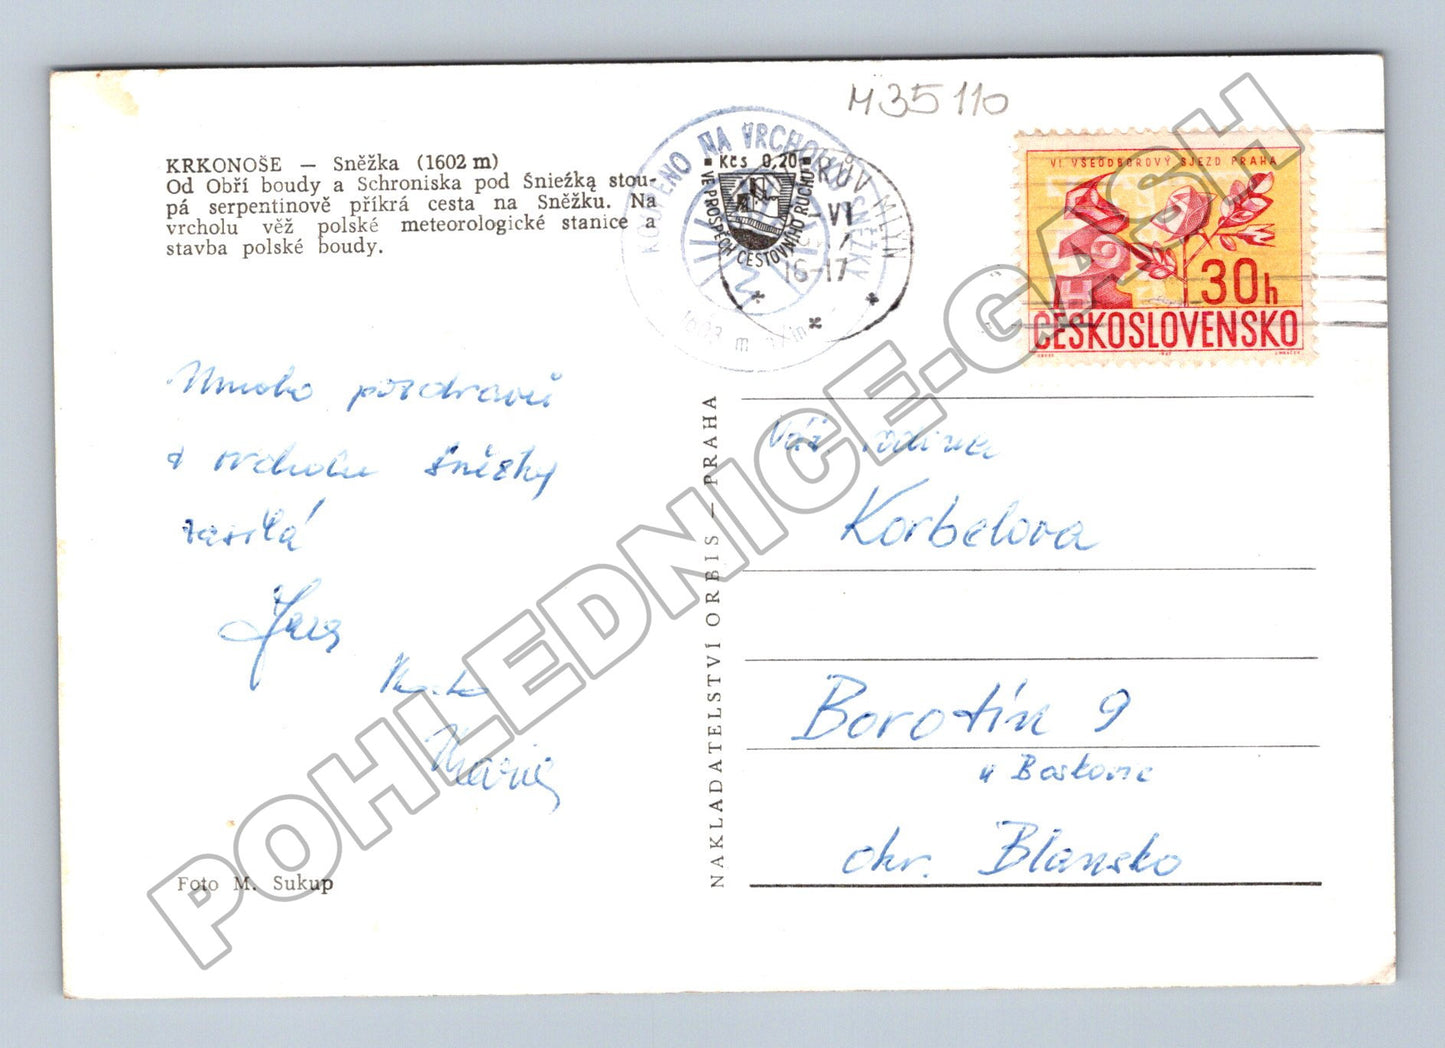 M35110
KRKONOŠE — Sněžka (1602 m)
Od Obří boudy a Schroniska pod Śnieźką stou-
pá serpentinově příkrá cesta na Sněžku. Na
vrcholu věž polské meteorologické stanice a
stavba polské boudy.
KOUPENO NA VRCHOLU SNĚŽKY
1603 m
Kčs 0,20
VE PROSPĚCH CESTOVNÍHO RUCHU
RŮV MLÝN
-VI
16-17
VI VŠEODBOROVÝ SJEZD PRAHA
30h
ČESKOSLOVENSKO
Mnoho pozdravů
z vrcholu Sněžky
zasílá
Marie
Foto M. Sukup
NAKLADATELSTVÍ ORBIS — PRAHA
Váž. rodina
Korbelova
Borotín 9
u Boskovic
okr. Blansko
POHLEDNICE-GASH